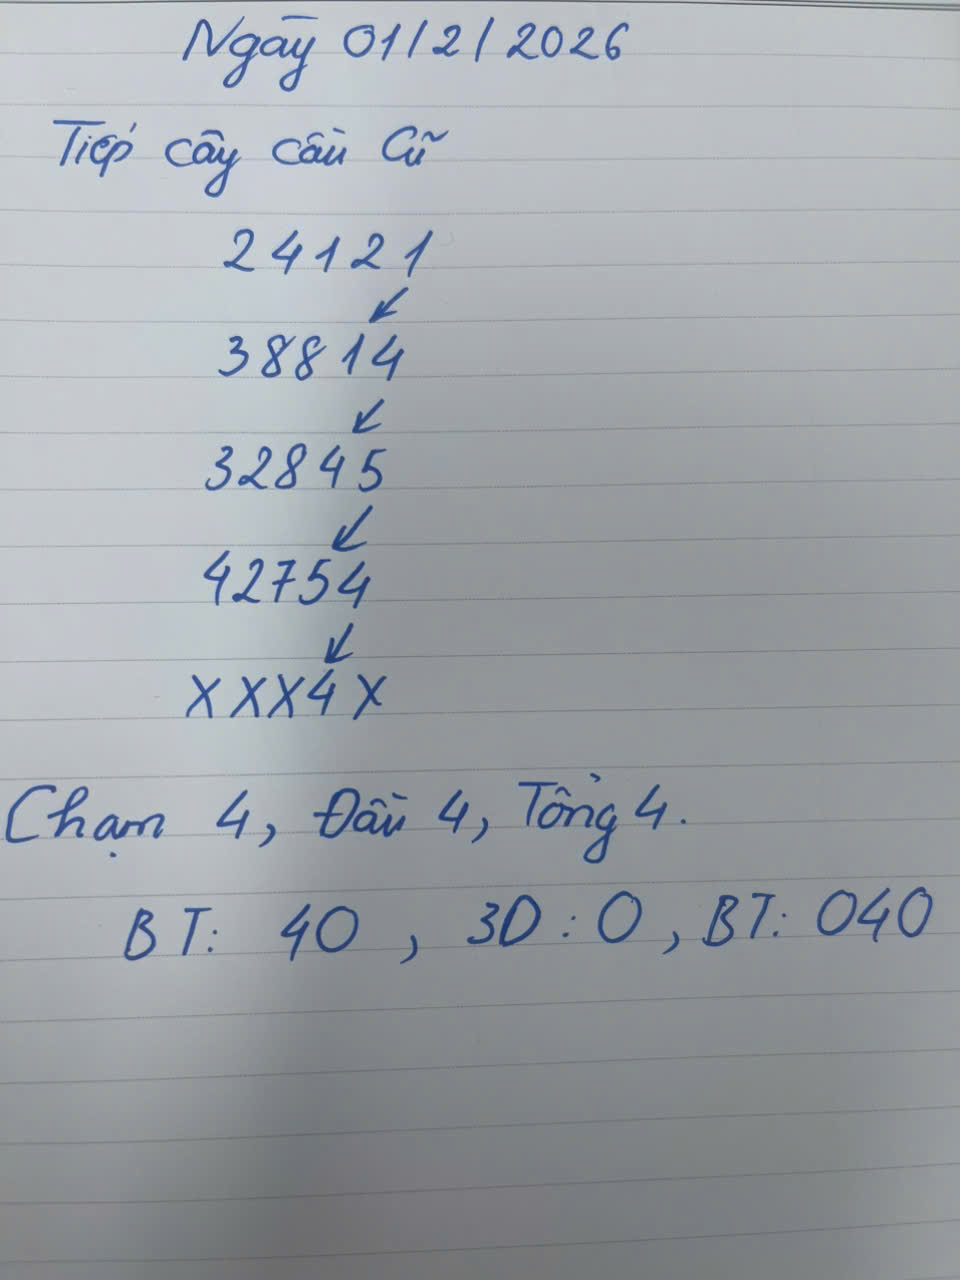 Ngày 01/2/2026
Tiếp cây cầu Cũ
24121
38814
32845
42754
XXX4X
Chạm 4, Đầu 4, Tổng 4.
BT: 40, 3D: 0, BT: 040